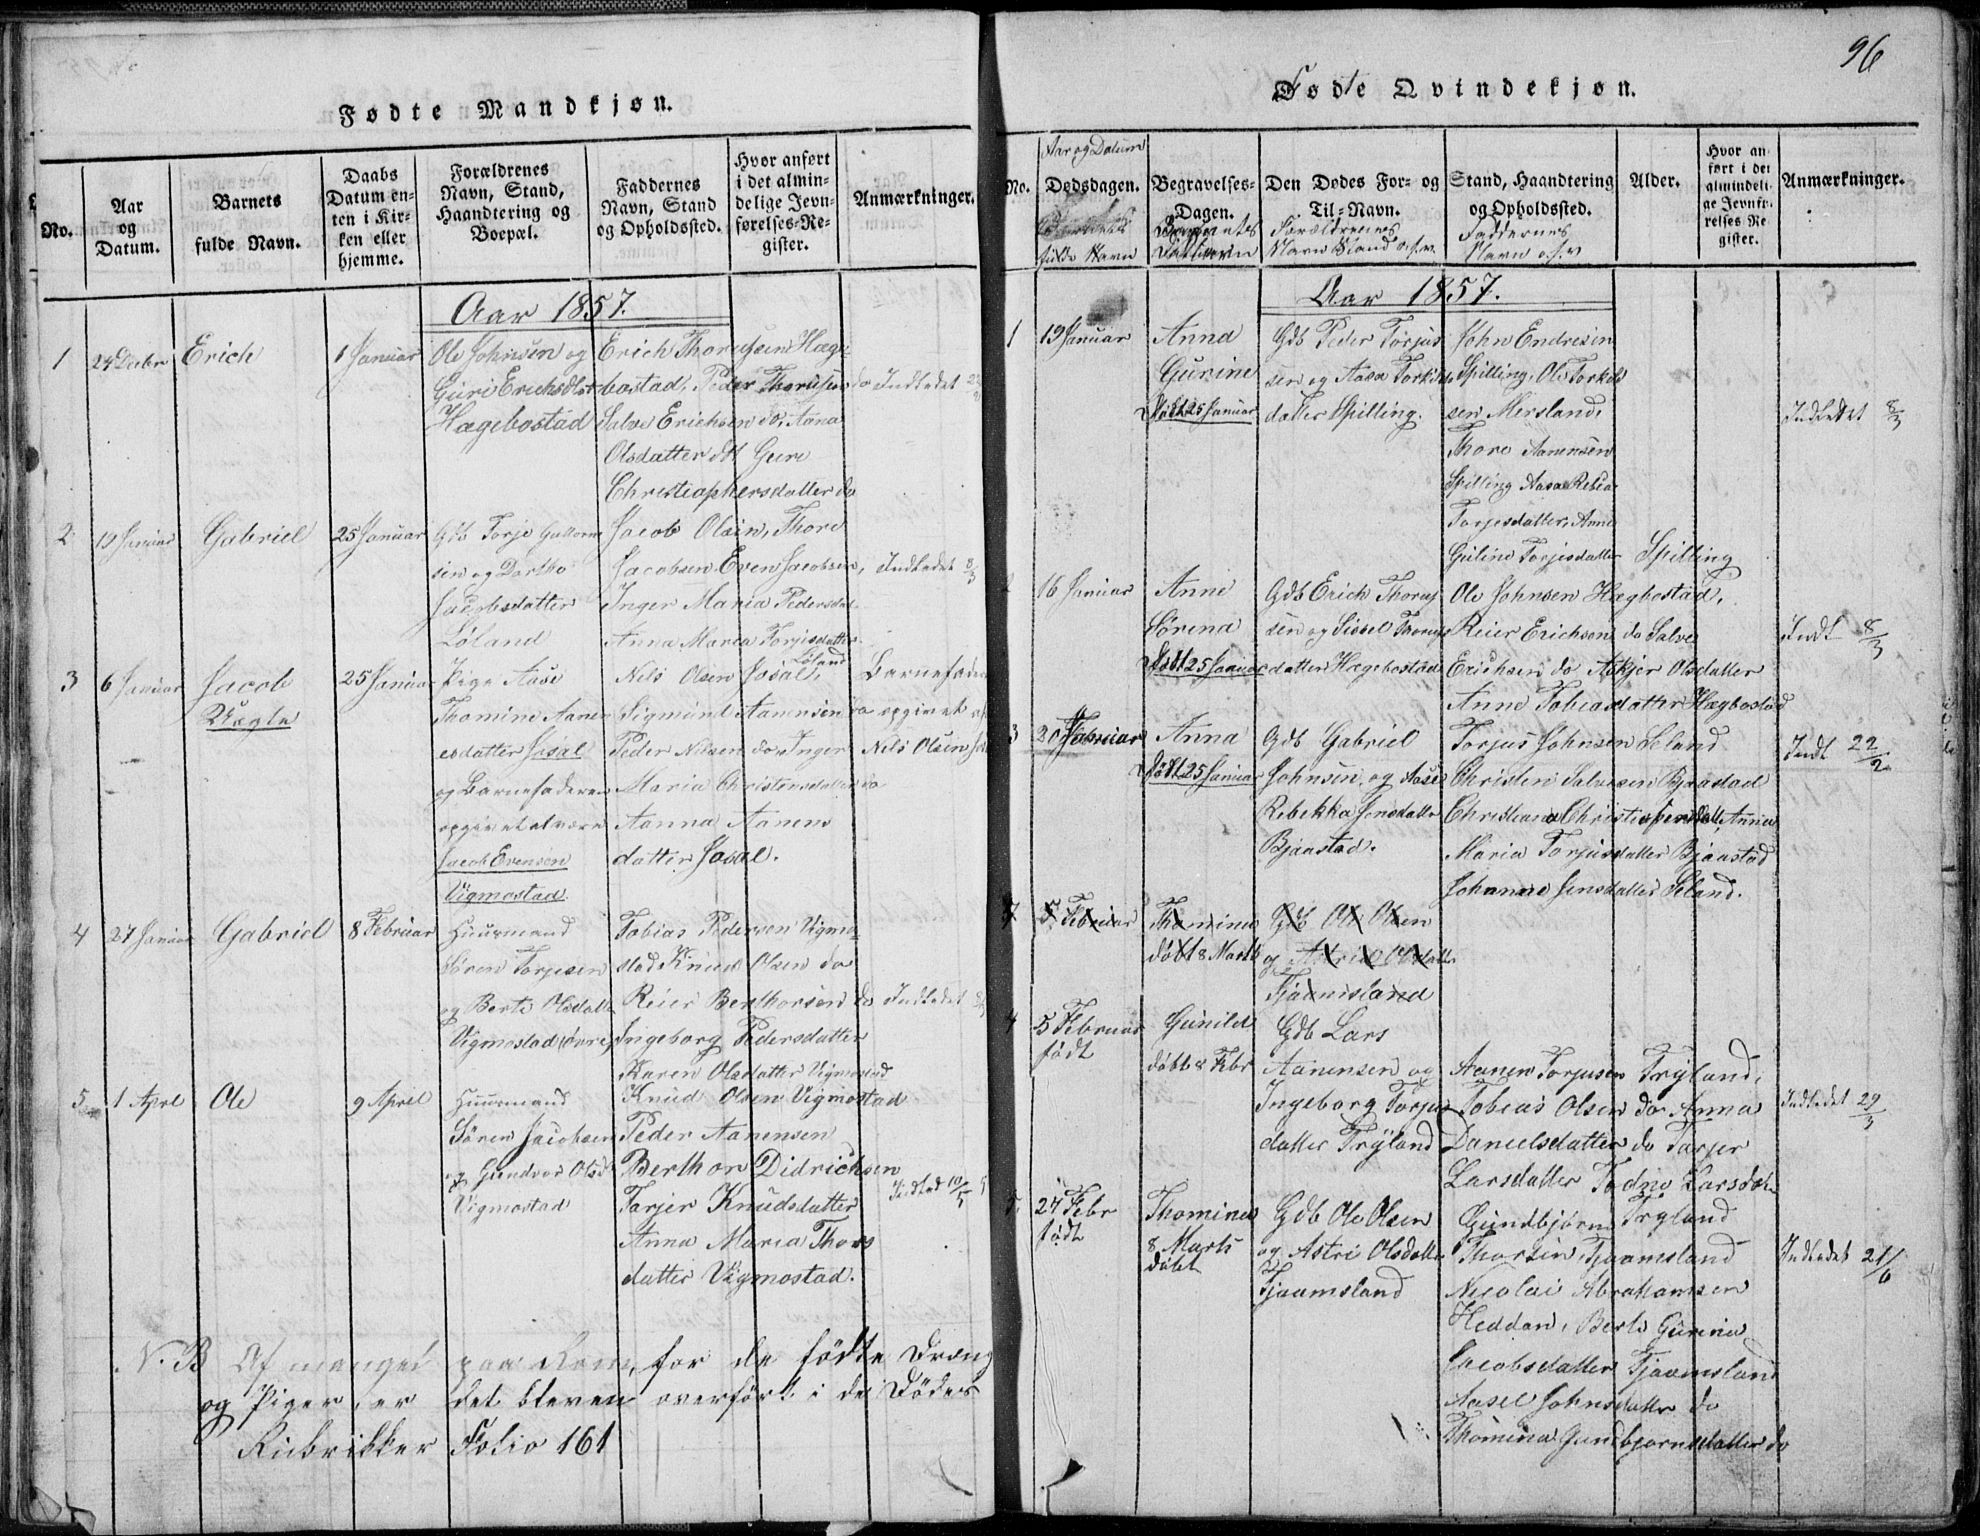 Fødte Mandkjøn.
No.
Aar
og
Datum.
Barnets
fulde Navn.
Daabs
Datum en-
ten i Kir-
ken eller
hjemme.
Forældrenes
Navn, Stand,
Haandtering og
Boepæl.
Faddernes
Navn, Stand
og Opholdssted.
Hvor anført
i det almin-
delige Jevn-
førelses-Re-
gister.
Anmærkninger.
Aar 1857.
1
24 Decbr
Erich
1 Januar
Ole Johnsen og
Guri Erichsdtr
Hægebostad
Erich Thorusen Hæge
bostad, Peder Thorusen do
Salve Erichsen do, Anna
Olsdatter do Guri
Christiaphersdatter do
Indledet
2
19 Januar
Gabriel
25 Januar
Gdb Torje Guttorm
sen og Dorthe
Jacobsdatter
Løland
Jacob Olsen, Thore
Jacobsen Even Jacobsen,
Inger Maria Pedersdat
Anna Maria Torjisdatter
Løland
Indledet 8/3
3
6 Januar
Jacob
Uægte
25 Januar
Pige Aase
Thomine Aanen
esdatter Josal
og Barnefaderen
opgivet at være
Jacob Evensen
Vigmostad.
Nils Olsen Josal,
Sigmund Aanensen do
Peder Nilsen do Inger
Maria Christensdatter do
Aanna Aanens
datter Josal.
Barnefader
opgivet af
Nils Olsen
4
27 Januar
Gabriel
8 Februar
Huusmand
Søren Torjesen
og Berte Olsdatter
Vigmostad øvre
Tobias Pedersen Vigmo-
stad Knud Olsen do
Reier Berthorsen do
Ingeborg Pedersdatter
Karen Olsdatter Vigmostad
Indledet
5
1 April
Ole
9 April
Huusmand
Søren Jacobsen
og Gundvor Olsd
Vigmostad
Knud Olsen Vigmostad
Peder Aanensen
Berthor Didrichsen
Torjer Knudsdatter
Anna Maria Thors
datter Vigmostad.
Indled 10/5
N. B Af mangel paa Rom, for de fødte Dreng
og Piger, er det bleven overført i de Dødes
Rubrikker Folio 161
96
Fødte Qvindekjøn.
No.
Aar og Datum
Dødsdagen.
fulde Navn
Begravelses-
Dagen.
Barnets
Den Dødes For- og
Til-Navn.
Forældrenes
Navn Stand o.s.v.
Stand, Haandtering
og Opholdssted.
Faddernes
Navn o.s.v
Alder.
Hvor an-
ført i det
almindeli-
ge Jevnfø-
relses-Re-
gister.
Anmærkninger.
Aar 1857.
1
19 Januar
Anna
Gurine
døbt 25 Januar
Gdb Peder Torjus
sen og Aasa Torkels
datter Spilling.
John Endresen
Spilling, Ole Torkel
sen Mersland,
Thore Aanensen
Spilling Aasa Rebea
Torjesdatter, Anne
Guline Torjisdatter Spilling
Indledet 8/3
16 Januar
Anne
Sørena
døbt 25 Januar
Gdb Erich Thorus
sen og Sissel Thorus
datter Hægebostad
Ole Johnsen Hægbostad,
Reier Erichsen do Salve
Erichsen do Askjer Olsdatter
Anne Tobiasdatter Hægbostad
Indl 8/3
3
20 Februar
Anna
døbt 25 Januar
Gdb Gabriel
Johnsen og Aase
Rebekka Jensdatter
Bjaastad.
Torjus Johnsen Leland
Christen Salvesen Bjaastad
Christiana Christiaphersdatter, Anna
Maria Torjusdatter Bjaastad
Johanne Jensdatter Leland.
Indl 22/2
5 Februar
Thomine
døbt 8 Marts
Gdb Ole Olsen
og Astrie Olsdatter
Tjaamsland
4
5 Februar
født
Gunild
døbt 8 Fbr
Gdb Lars
Aanensen og
Ingeborg Torjus
datter Tryland
Aanen Torjusen Tryland,
Tobias Olsen do Anna
Danielsdatter do Torjer
Larsdatter Todne Larsdatter
Tryland
Indledet 29/3
5.
27 Febr
født
Thomine
8 Marts
døbt
Gdb Ole Olsen
og Astri Olsdatter
Tjaamsland
Gundbjørn
Thorsen, Tjaamsland
Nicolai Abrahamsen
Heddan, Berte Gurine
Jacobsdatter Tjaamsland
Aasel Johnsdatter do
Thomine Gundbjørnsdatter do
Indledet 21/6